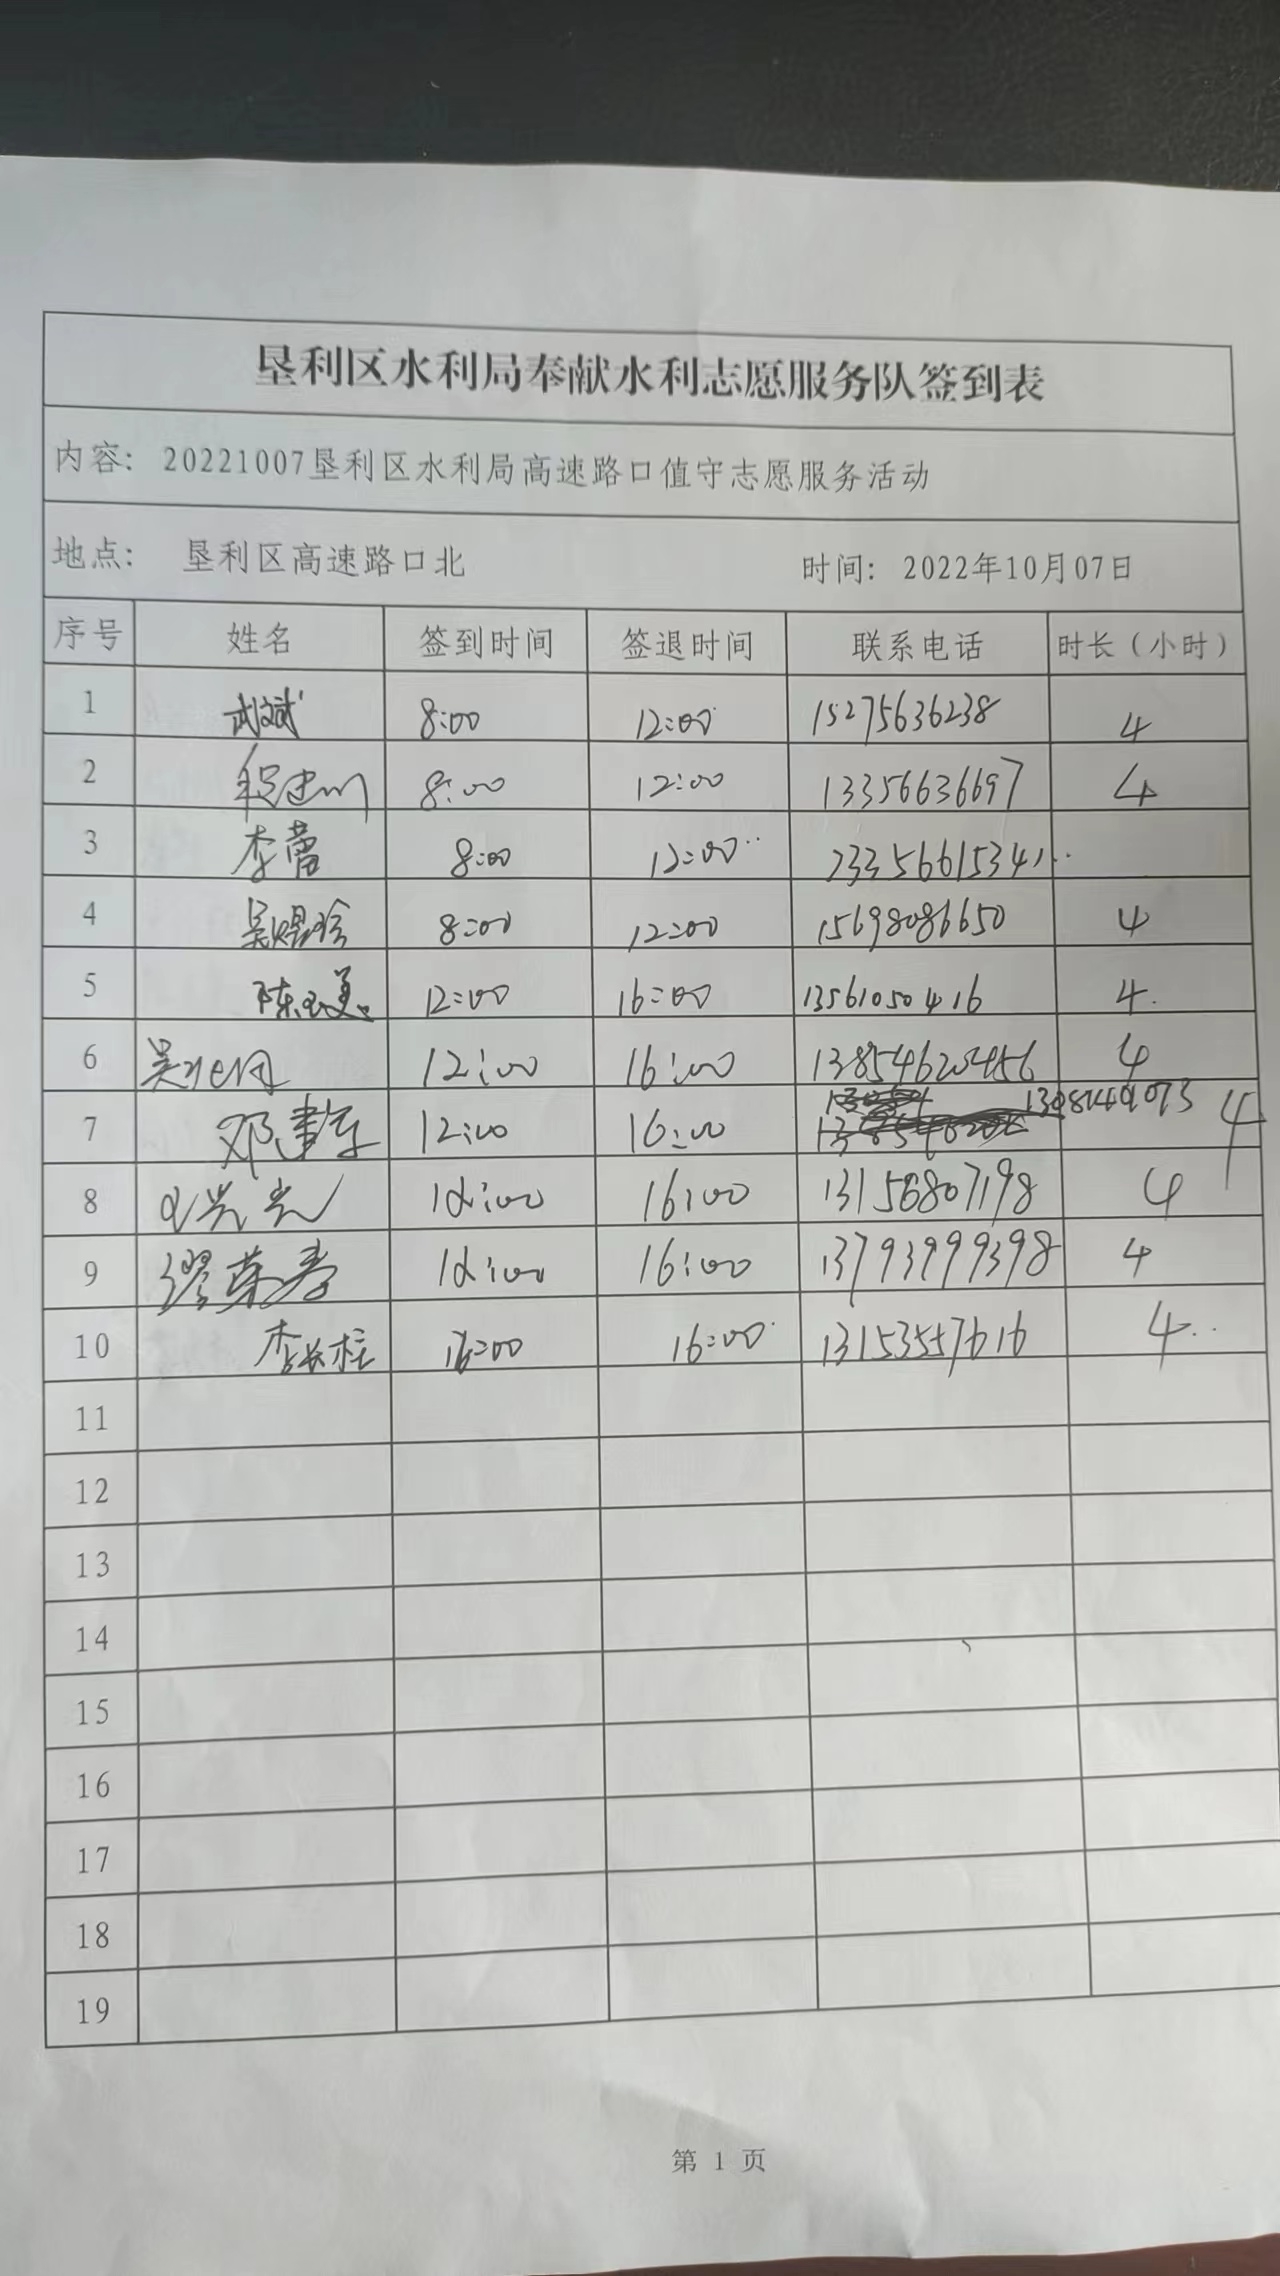 垦利区水利局奉献水利志愿服务队签到表
内容: 20221007垦利区水利局高速路口值守志愿服务活动
地点: 垦利区高速路口北 时间: 2022年10月07日
序号 姓名 签到时间 签退时间 联系电话 时长(小时)
1 武斌 8:00 12:00 15275636238 4
2 8:00 12:00 13356636697 4
3 李蕾 8:00 12:00
4 吴煜珍 8:00 12:00 15698086650 4
5 陈玉美 12:00 16:00 13561050416 4
6 12:00 16:00 4
7 邓建军 12:00 16:00 4
8 16:00 13156807198 4
9 缪荣寿 12:00 16:00 13793999398 4
10 李长柱 16:00 13153557616 4
11
12
13
14
15
16
17
18
19
第 1 页